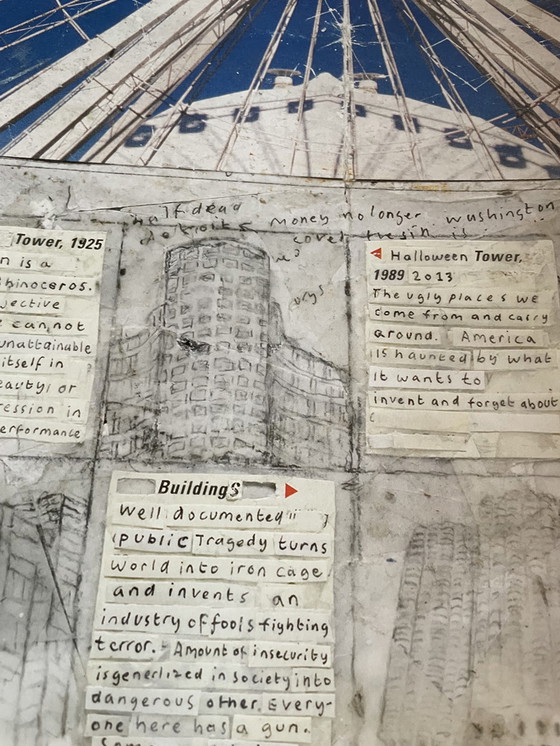 half dead
detroits
money no longer washington
cover is
Tower, 1925
n is a
hinoceros.
jective
e cannot
unattainable
itself in
eauty, or
ression in
erformante
Halloween Tower,
1989 2013
The ugly places we
come from and carry
around. America
is haunted by what
it wants to
invent and forget about
Buildings
Well documented
(public Tragedy turns
world into iron cage
and invents an
industry of fools fighting
terror. - Amount of insecurity
is generlized in society into
dangerous other. Every-
one here has a gun.